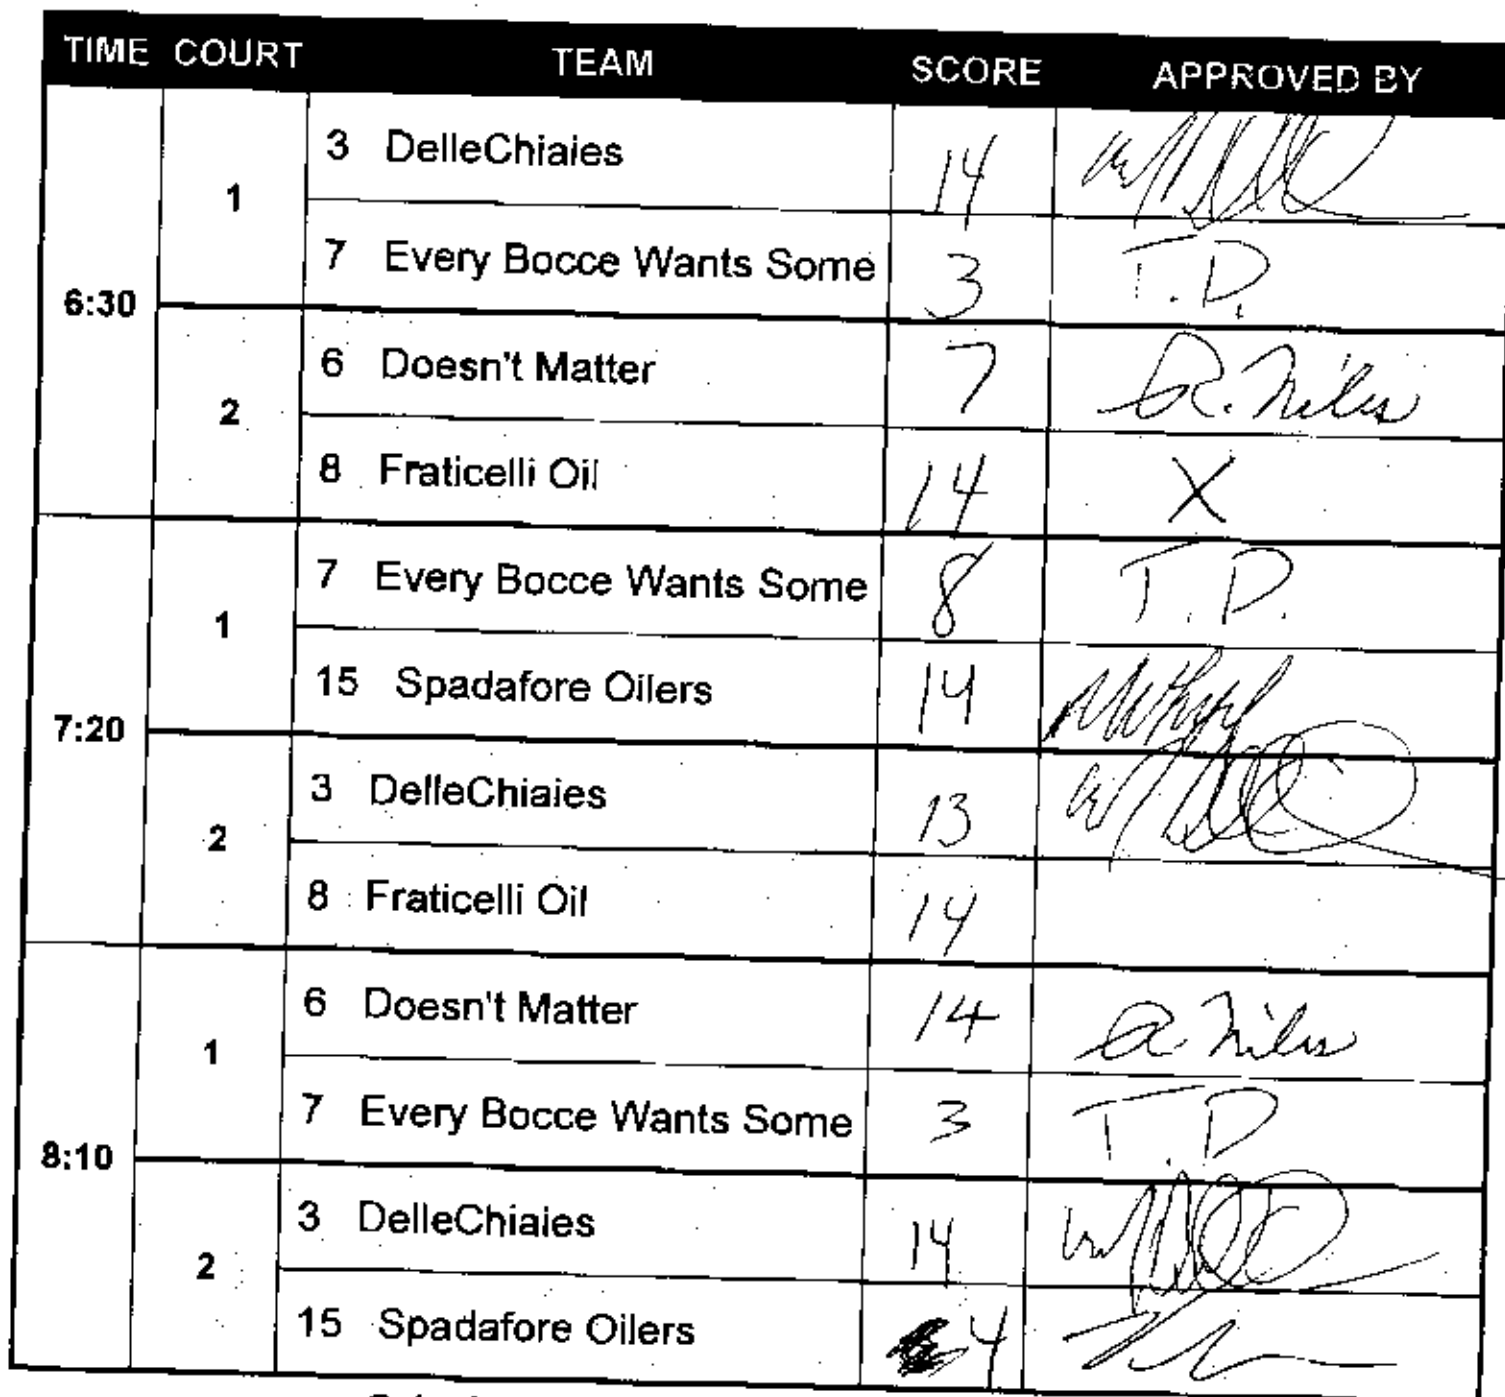 TIME COURT TEAM SCORE APPROVED BY
6:30
1
3 DelleChiaies 14
7 Every Bocce Wants Some 3 T.D.
2
6 Doesn't Matter 7 R. Niles
8 Fraticelli Oil 14 X
7:20
1
7 Every Bocce Wants Some 8 T.D.
15 Spadafore Oilers 14
2
3 DelleChiaies 13
8 Fraticelli Oil 14
8:10
1
6 Doesn't Matter 14 a Niles
7 Every Bocce Wants Some 3 T.D
2
3 DelleChiaies 14
15 Spadafore Oilers 4